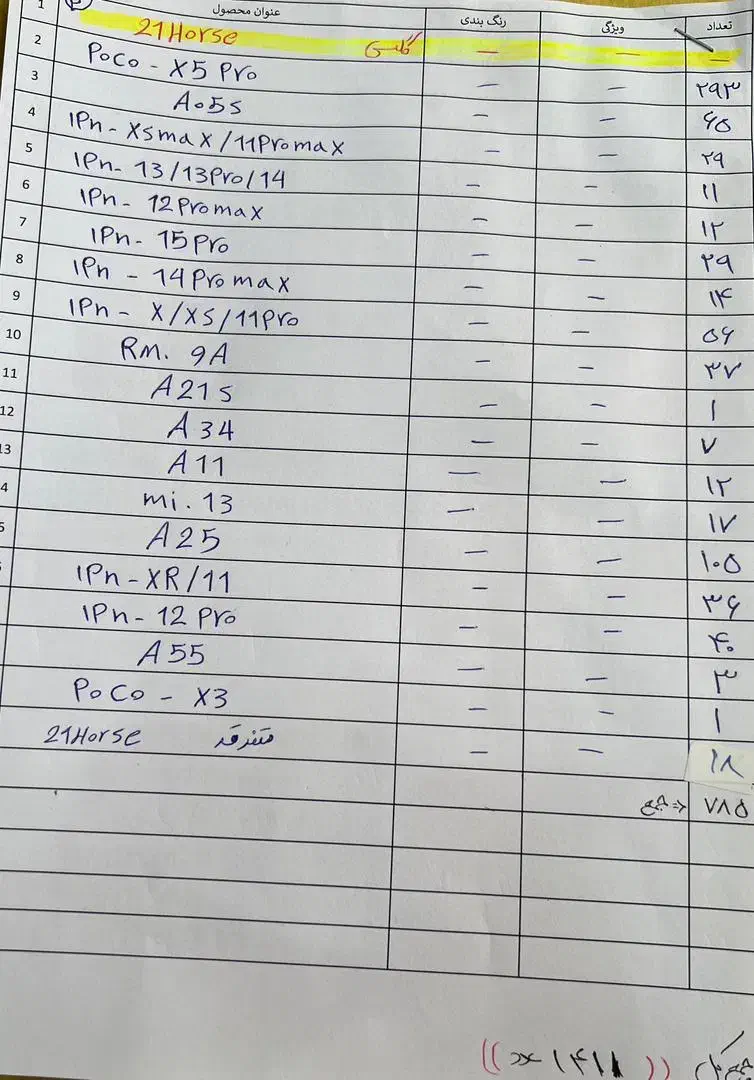 عنوان محصول رنگ بندی ویژگی تعداد
1 21Horse گلسی — — —
2 Poco - X5 Pro — — ۲۹۳
3 A05s — — ۶۵
4 IPn - XSmax/11Promax — — ۲۹
5 IPn- 13/13Pro/14 — — ۱۱
6 IPn- 12Promax — — ۱۲
7 IPn- 15Pro — — ۲۹
8 IPn - 14Promax — — ۱۴
9 IPn - X/XS/11Pro — — ۵۶
10 Rm. 9A — — ۳۷
11 A21s — — ۱
12 A34 — — ۷
13 A11 — — ۱۲
4 mi. 13 — — ۱۷
5 A25 — — ۱۰۵
IPn-XR/11 — — ۳۶
IPn- 12 Pro — — ۴۰
A55 — — ۳
PoCo - X3 — — ۱
21Horse متفرقه — — ۱۸
جمع => ۷۸۵